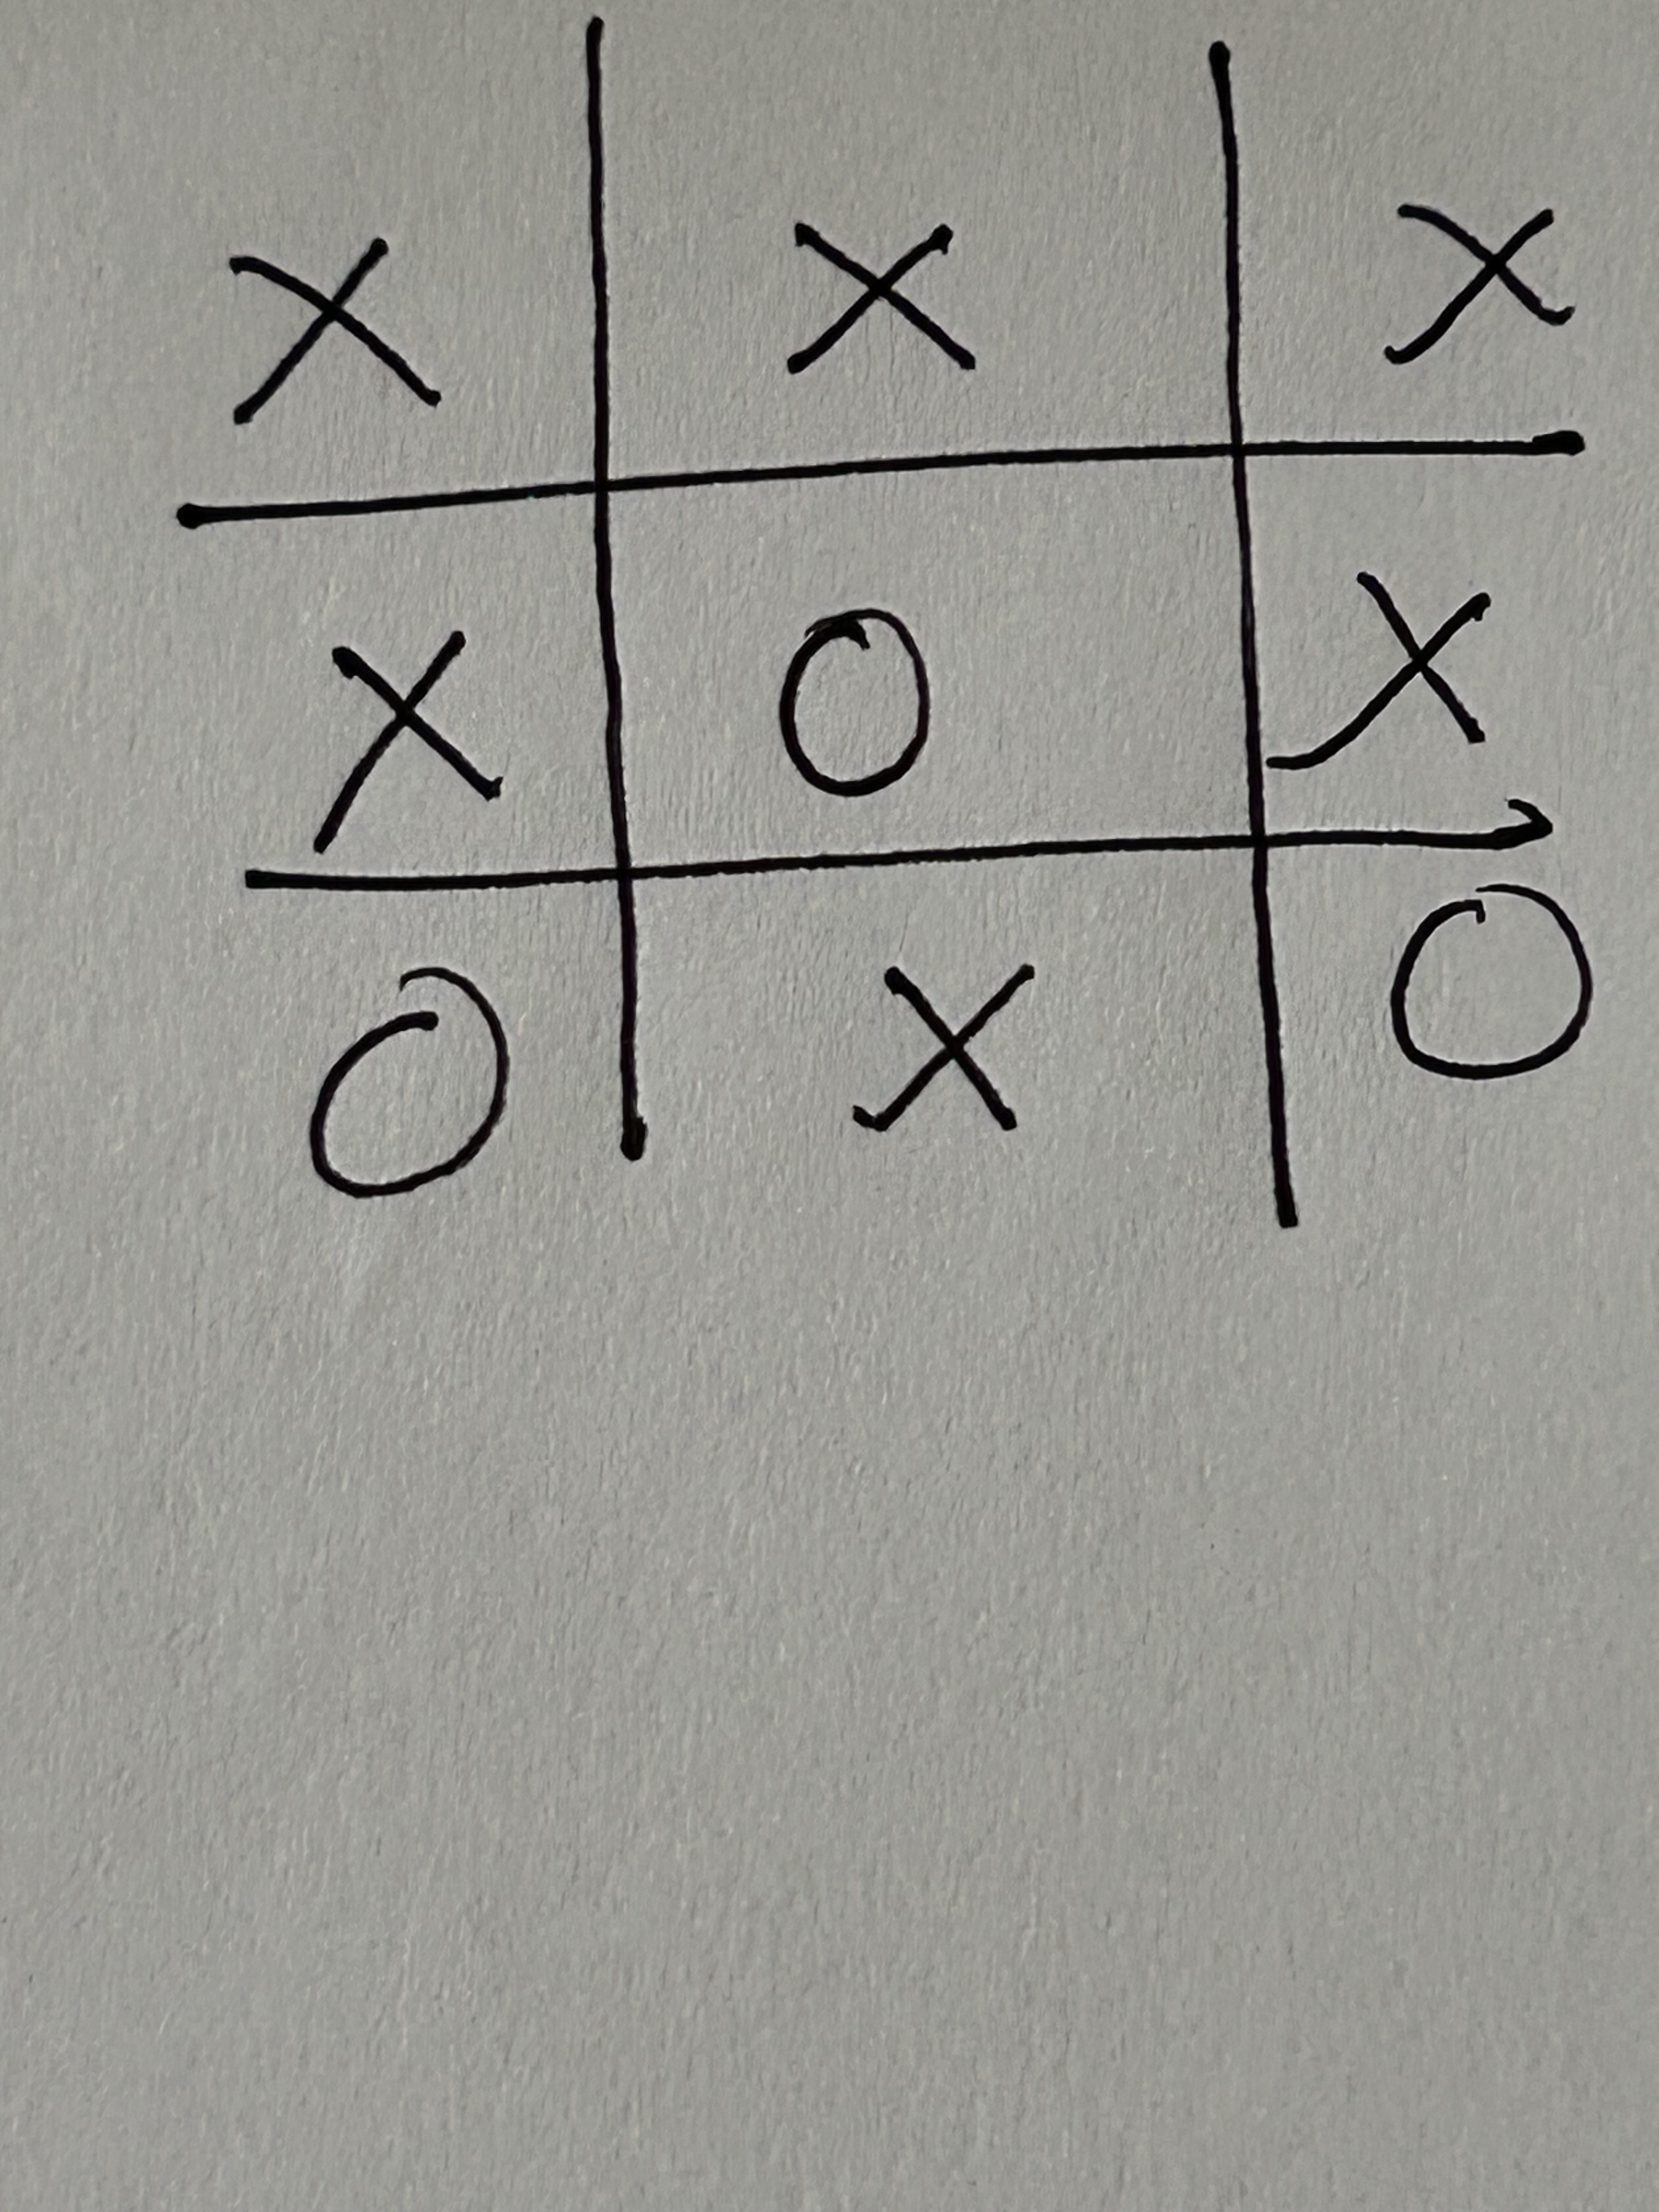 X X X
X O X
O X O